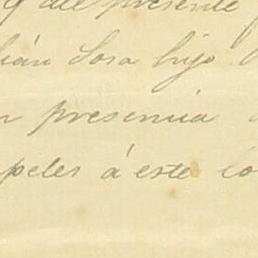 y del presente
ián Sosa hijo
presencia
peles á este